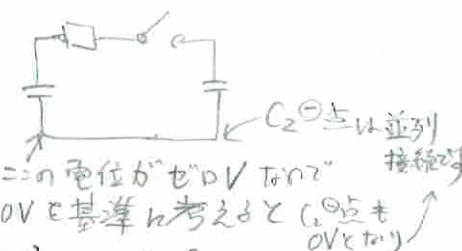 C₂⊖点は並列
接続です
ここの電位がゼロVなので
0Vを基準に考えると C₂⊖点も
0Vとなり